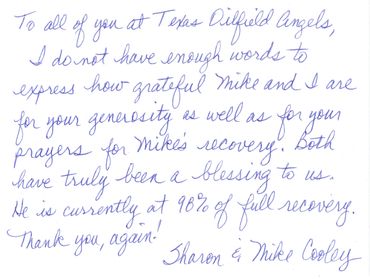 To all of you at Texas Oilfield Angels,
I do not have enough words to
express how grateful Mike and I are
for your generosity as well as for your
prayers for Mike's recovery. Both
have truly been a blessing to us.
He is currently at 98% of full recovery.
Thank you, again!
Sharon & Mike Cooley